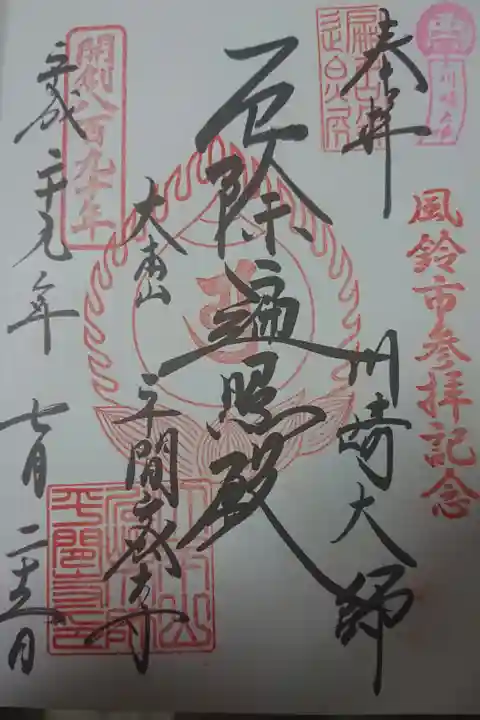 川崎大師
風鈴市参拝記念
奉拝
川崎大師
厄除遍照殿
大本山
平間寺
開創八百九十年
平成二十九年 七月 二十三日